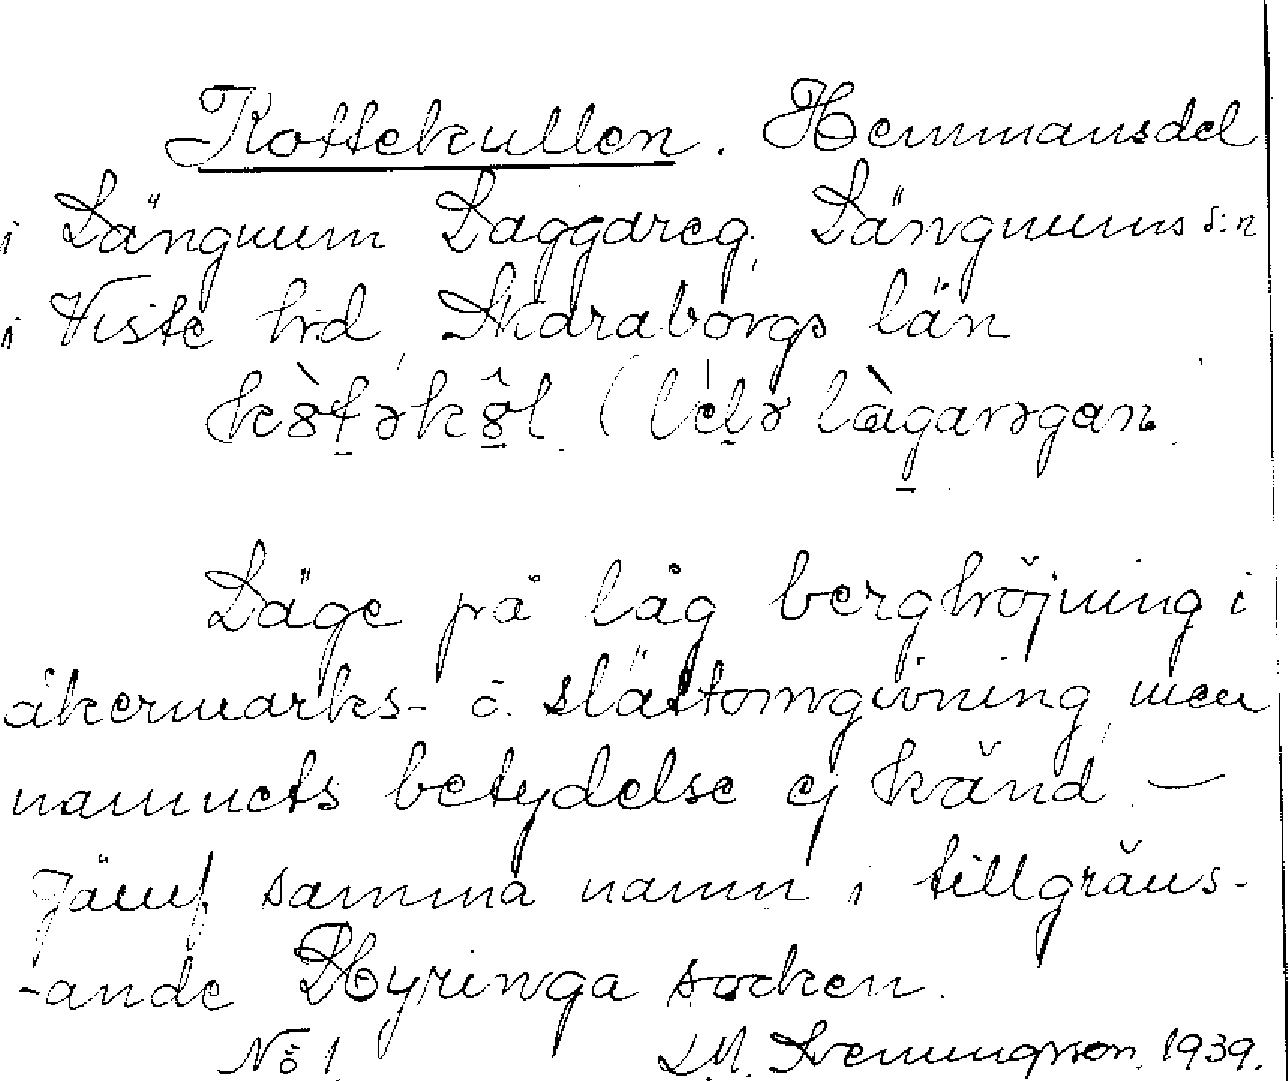 Kottekullen. Hemmansdel
i Längnum Laggareg. Längnums s:n
i Viste hd, Skaraborgs län
(
Läge på låg berghöjning i
åkermarks- o. slättomgivning, men
namnets betydelse ej känd. —
Jämf. samma namn i tillgräns-
-ande Hyringa socken.
No 1. L.M. Svenungsson. 1939.